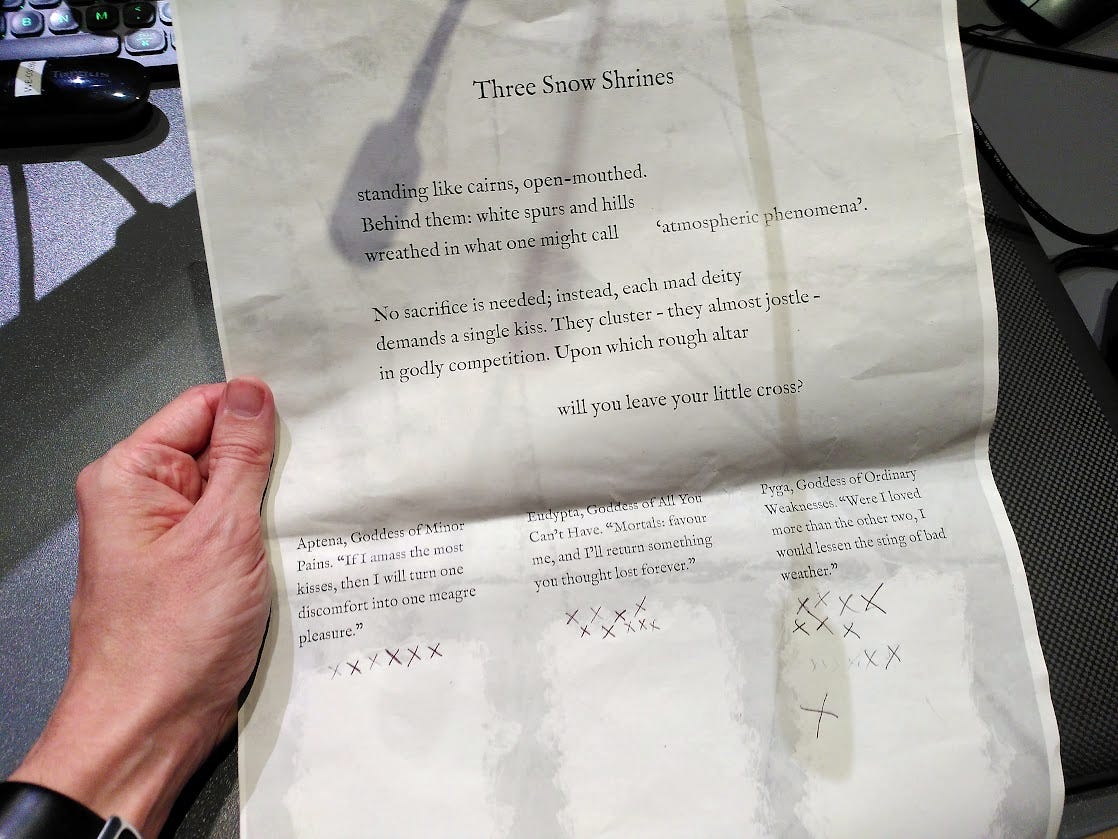 Three Snow Shrines
standing like cairns, open-mouthed.
Behind them: white spurs and hills
wreathed in what one might call ‘atmospheric phenomena’.
No sacrifice is needed; instead, each mad deity
demands a single kiss. They cluster – they almost jostle –
in godly competition. Upon which rough altar
will you leave your little cross?
Aptena, Goddess of Minor
Pains. “If I amass the most
kisses, then I will turn one
discomfort into one meagre
pleasure.”
x x x x x x
Eudypta, Goddess of All You
Can’t Have. “Mortals: favour
me, and I’ll return something
you thought lost forever.”
x x x x
x x x x x
Pyga, Goddess of Ordinary
Weaknesses. “Were I loved
more than the other two, I
would lessen the sting of bad
weather.”
x x x x
x x x
x x x
x
B N M